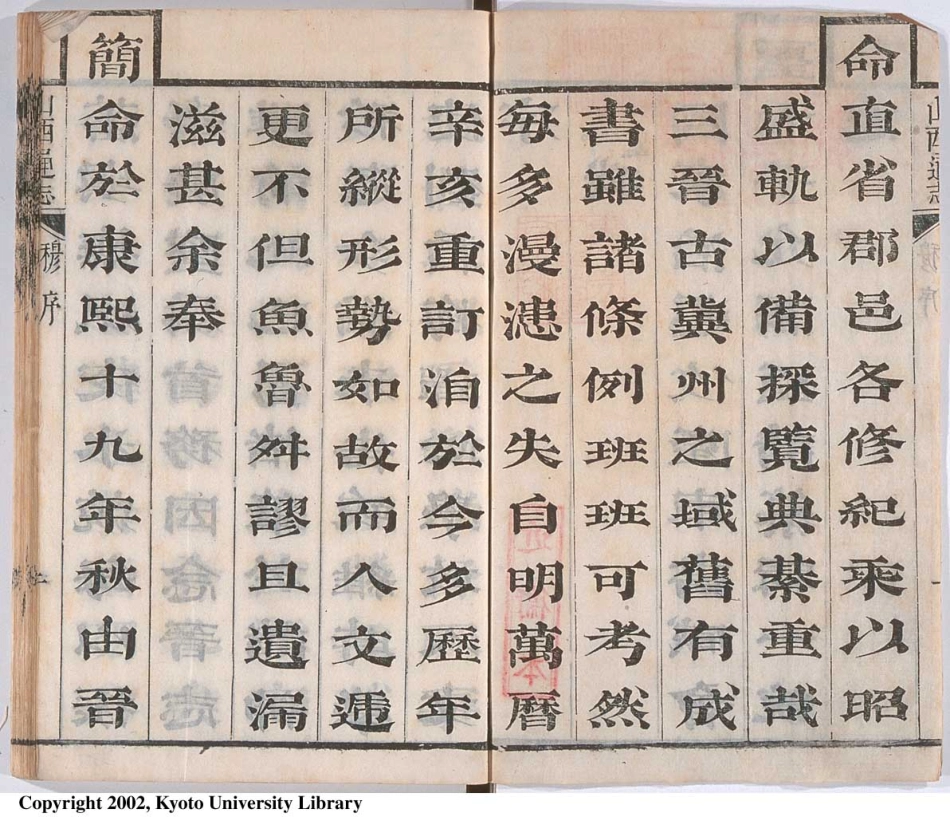 命直省郡邑各修紀乘以昭
盛軌以備採覽典綦重哉
三晉古冀州之域舊有成
書雖諸條例班班可考然
每多漫漶之失自明萬曆
辛亥重訂洎於今多歷年
所縱形勢如故而人文遞
更不但魚魯舛謬且遺漏
滋甚余奉
簡命於康熙十九年秋由晉
山西通志
穆序
Copyright 2002, Kyoto University Library